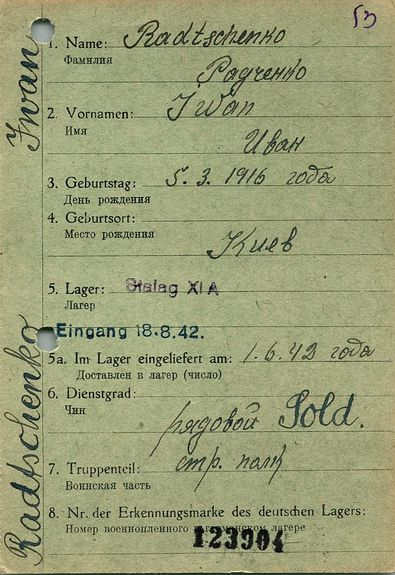 53
1. Name: Radtschenko
Фамилия
Радченко
2. Vornamen: Iwan
Имя
Иван
3. Geburtstag: 5. 3. 1916 года
День рождения
4. Geburtsort:
Место рождения
Киев
5. Lager: Stalag XI A
Лагер
Eingang 18.8.42.
5a. Im Lager eingeliefert am: 1.6.42 года
Доставлен в лагер (число)
6. Dienstgrad:
Чин
рядовой Sold.
7. Truppenteil: стр. полк
Воинская часть
8. Nr. der Erkennungsmarke des deutschen Lagers:
Номер военнопленного в германском лагере
123904
Radtschenko Iwan